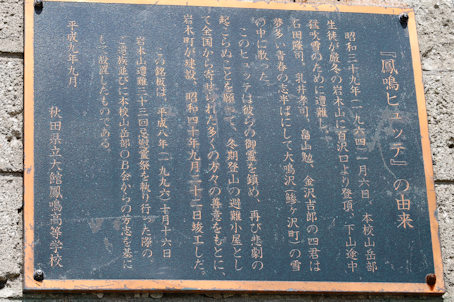 『鳳鳴ヒュッテ』の由来
昭和三十九年(一九六四)一月六日、本校山岳部
生徒が厳冬の岩木山に百沢口より登頂、下山途中
猛吹雪のために遭難し、
石田隆司、乳井孝司、畠山勉、金沢吉郎の四君は
夢多い青春の志半ばにして大鳴沢(鰺ヶ沢町)の雪
の中に散った。
このヒュッテは彼らの御霊を鎮め、再び悲劇の
起こらぬことを願って、冬期登山の避難小屋とし
て全国から寄せられた多くの方々の善意をもとに、
岩木町が建設、昭和四十年九月二十二日竣工した。
この銘板は、平成八年(一九九六)十月十六日
岩木山遭難三十三回忌慰霊祭を執り行った際の、
ご遺族並びに本校山岳部OB会からの寸志を基に
して設置したものである。
平成九年九月
秋田県立大館鳳鳴高等学校